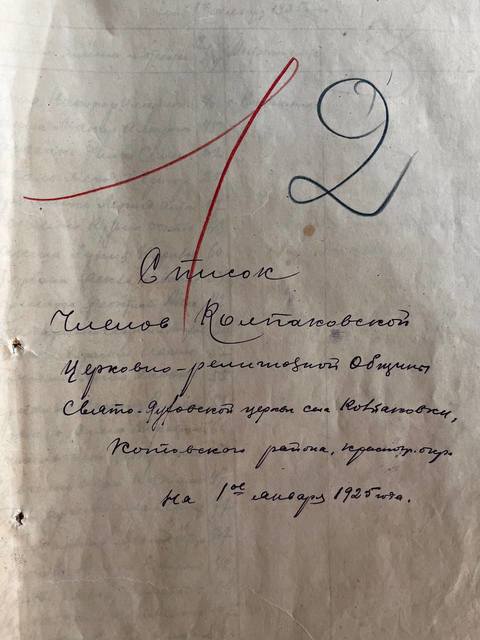 1 2
Список
Членов Колпаковской
Церковно-религиозной Общины
Свято-Духовской церкви села Ковпаковки,
Котовского района, Красногр. окр.
На 1ое января 1925 года.